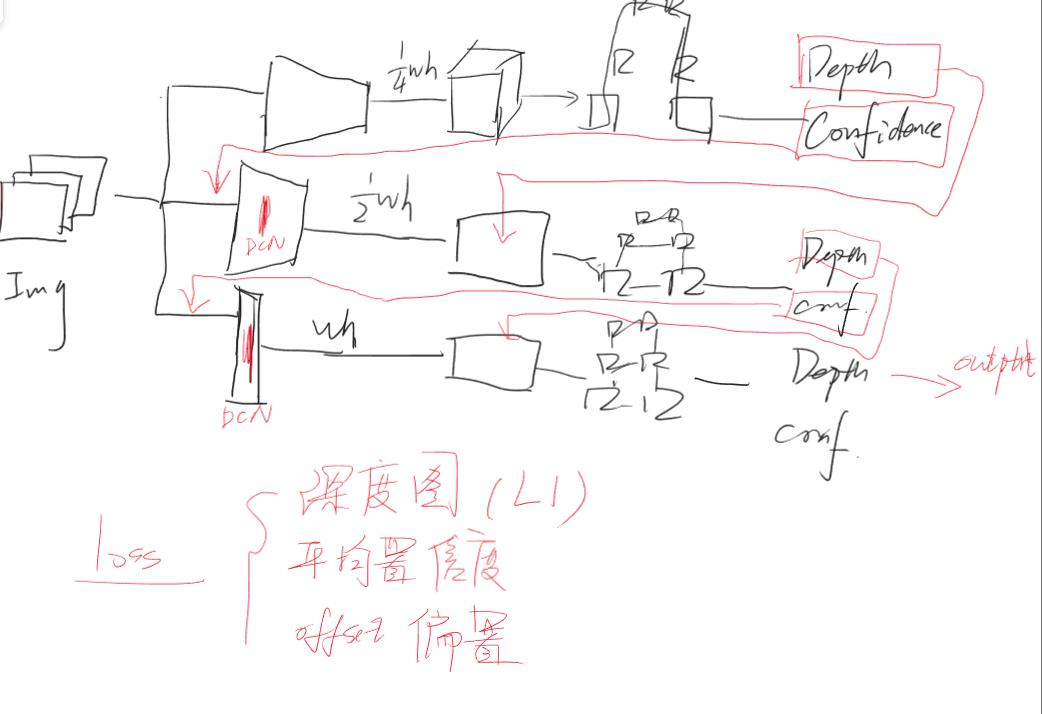 R R
1/4 wh
R R
Depth
Confidence
Img
DCN
1/2 wh
R R
R R
R R
Depth
conf.
DCN
wh
R R
R R
R R
Depth
conf.
output
loss
深度图 (L1)
平均置信度
offset 偏置